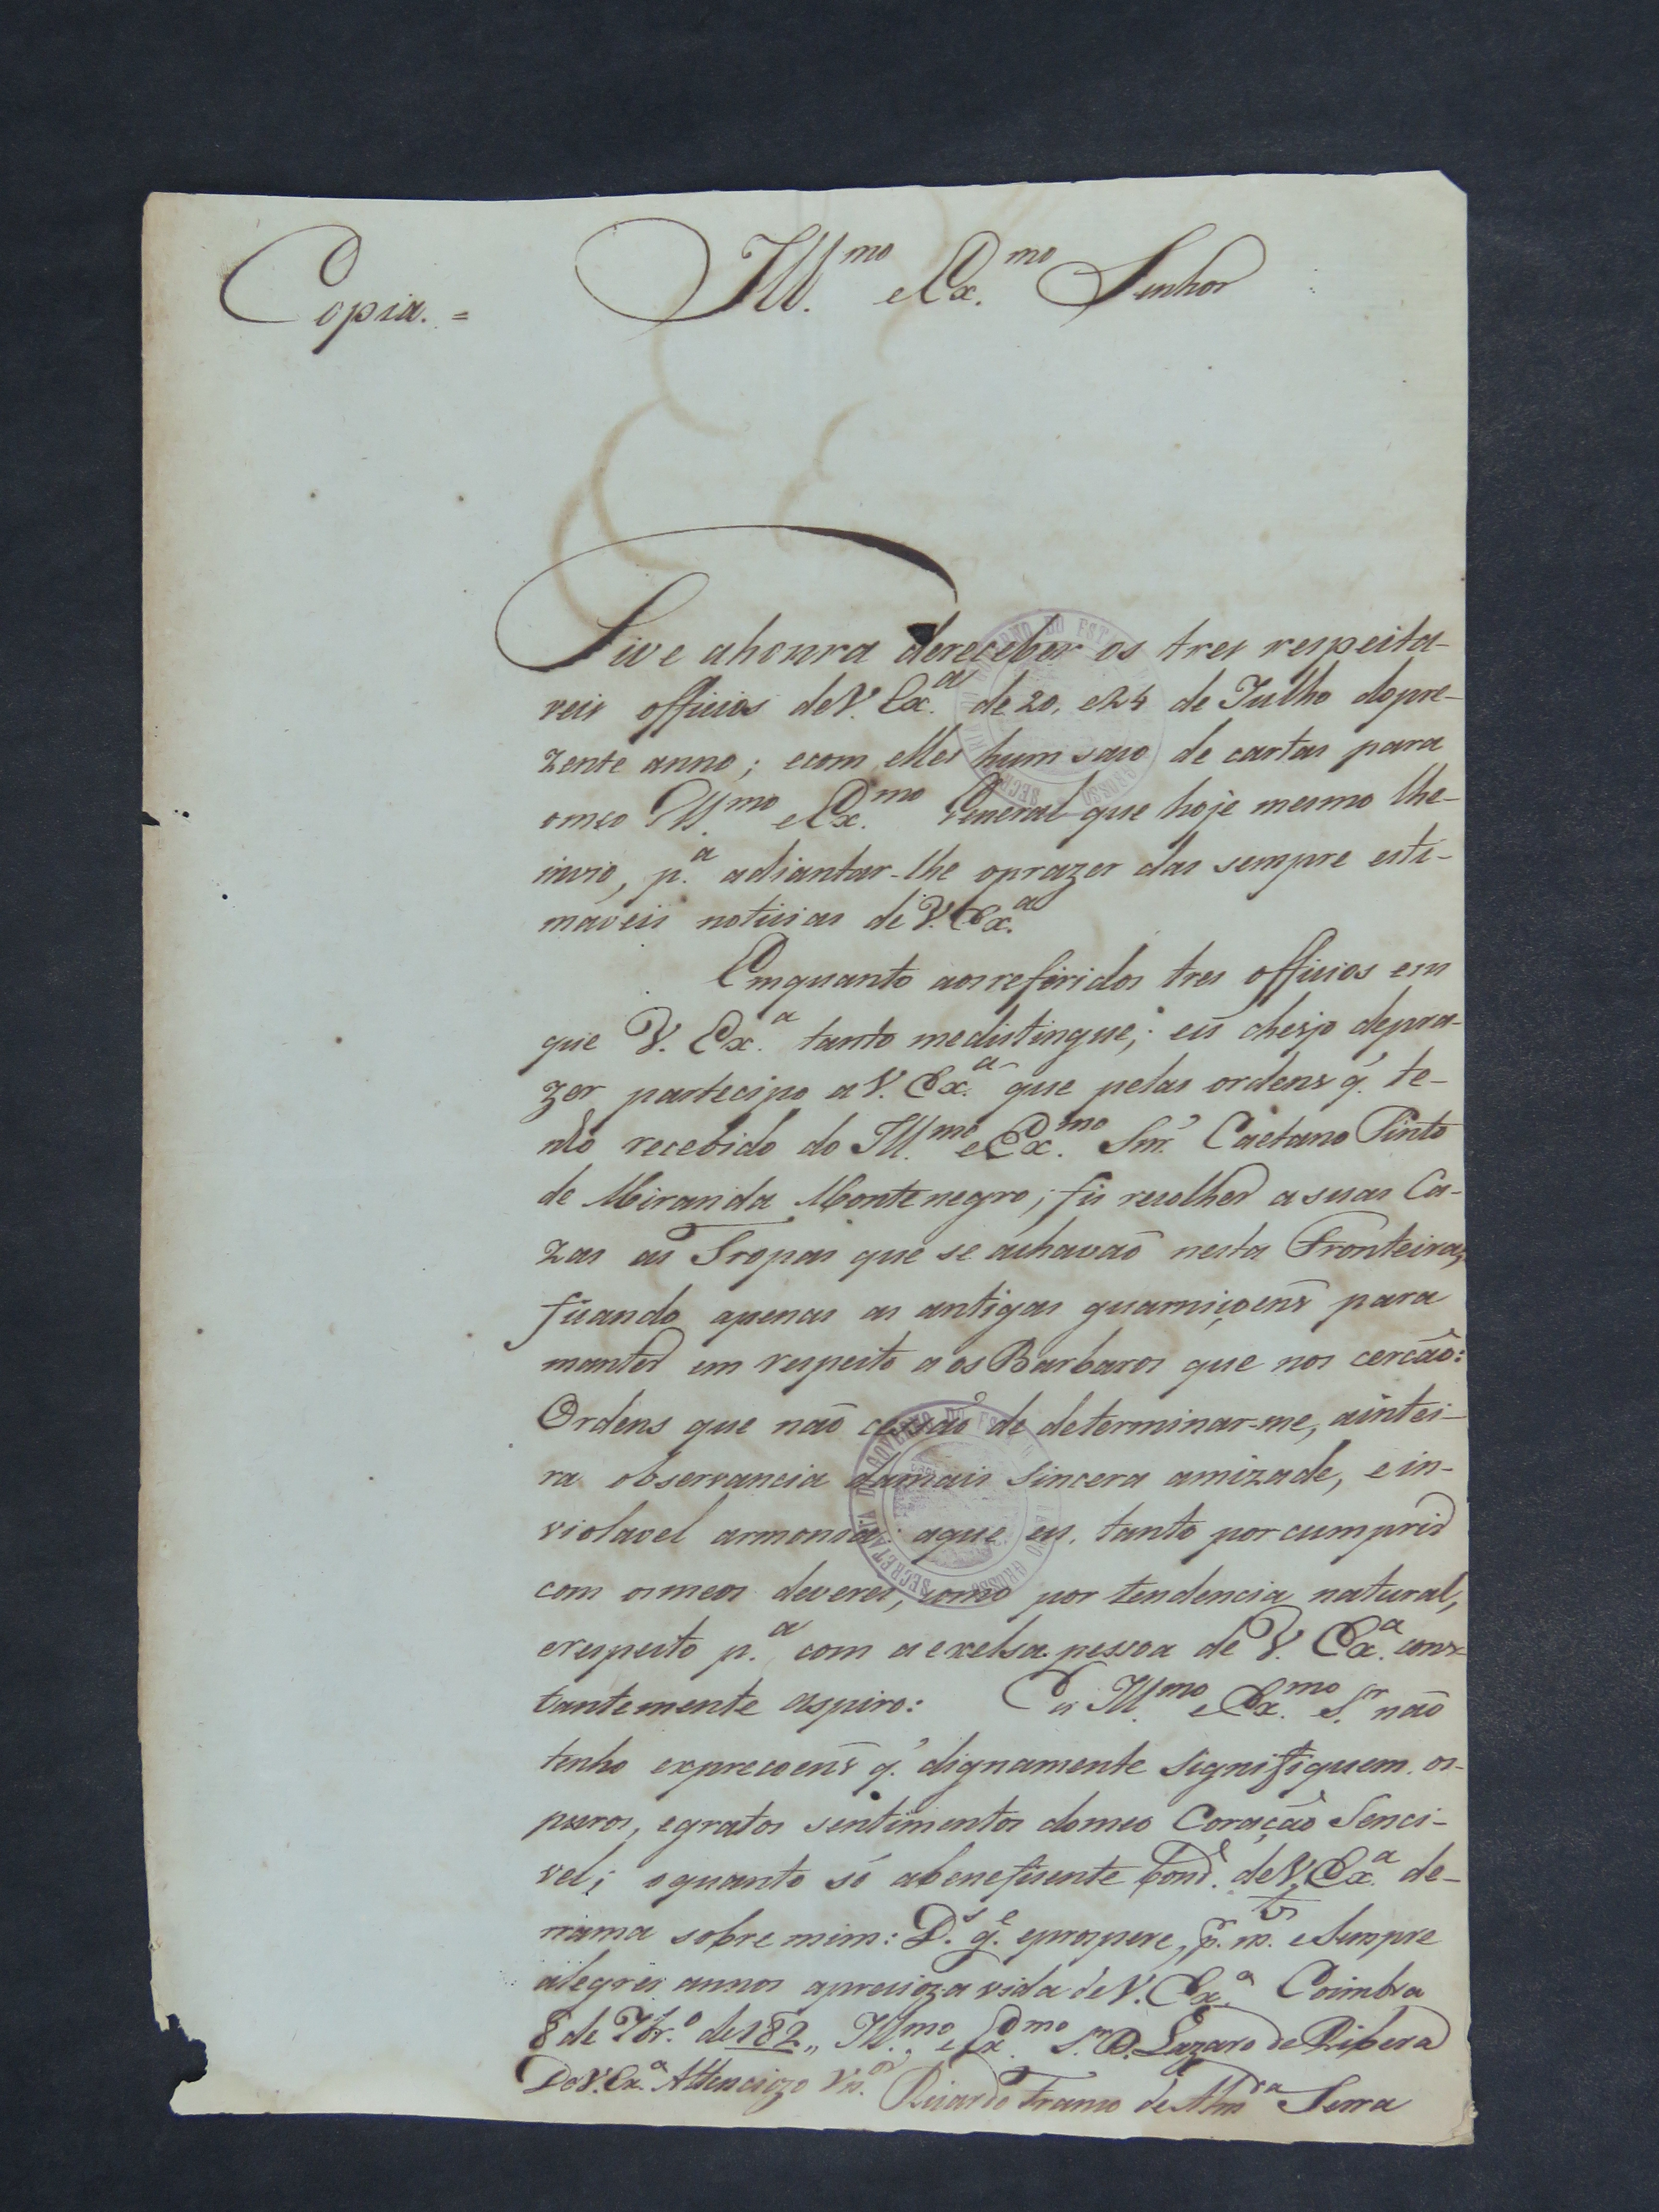 Copia. =
Ill.mo e Ex.mo Senhor
Tive ahonra dereceber os tres respeita-
veis officios deV. Ex.a de 20, e24 de Julho dopre-
zente anno; ecom elles hum saco de cartas para
omeo Ill.mo e Ex.mo General que hoje mesmo lhe-
invio, p.a adiantar-lhe oprazer das sempre esti-
maveis noticias de V. Ex.a
Emquanto aosreferidos tres officios em
que V. Ex.a tanto medistingue; eu cheyo depra-
zer partecipo a V. Ex.a que pelas ordens q. te-
nho recebido do Ill.mo e Ex.mo Snr. Caetano Pinto
de Miranda Montenegro; fis recolher a suas Ca-
zas as Tropas que se achavaõ nesta Fronteira,
ficando apenas as antigas guarniçoens para
manter em respeito aos Barbaros que nos cercaõ:
Ordens que naõ cessaõ de determinar-me, aintei-
ra observancia damais sincera amizade, e in-
violavel armonia: aque eu, tanto por cumprir
com osmeos deveres, como por tendencia natural,
erespeito p.a com a exelsa pessoa de V. Ex.a cons-
tantemente aspiro: Eu Ill.mo e Ex.mo S.r naõ
tenho expreçoens q. dignamente signifiquem os-
puros, egratos sentimentos domeo Coraçaõ Senci-
vel; oquanto só abeneficente bond.e de V. Ex.a de-
rrama sobre mim: D.s g.e eprospere, p.r m.tos e Sempre
alegres annos apresioza vida de V. Ex.a Coimbra
8 de 7br.o de 182,, Ill.mo e Ex.mo S.r D. Lazaro de Ribera
De V. Ex.a Attenciozo Ricardo Franco de Alm.da Serra
SECRETARIA DO GOVERNO DO ESTADO GROSSO
SECRETARIA DO GOVERNO DO ESTADO GROSSO